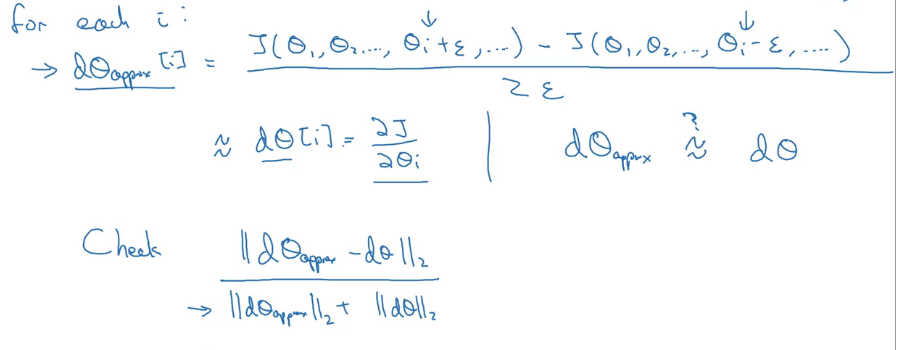 for each i:
→ dθapprox[i] = J(θ₁, θ₂, ..., θi+ε, ...) - J(θ₁, θ₂, ..., θi-ε, ....) / 2ε
≈ dθ[i] = ∂J/∂θi | dθapprox ≈? dθ
Check ‖dθapprox - dθ‖₂
→ ‖dθapprox‖₂ + ‖dθ‖₂